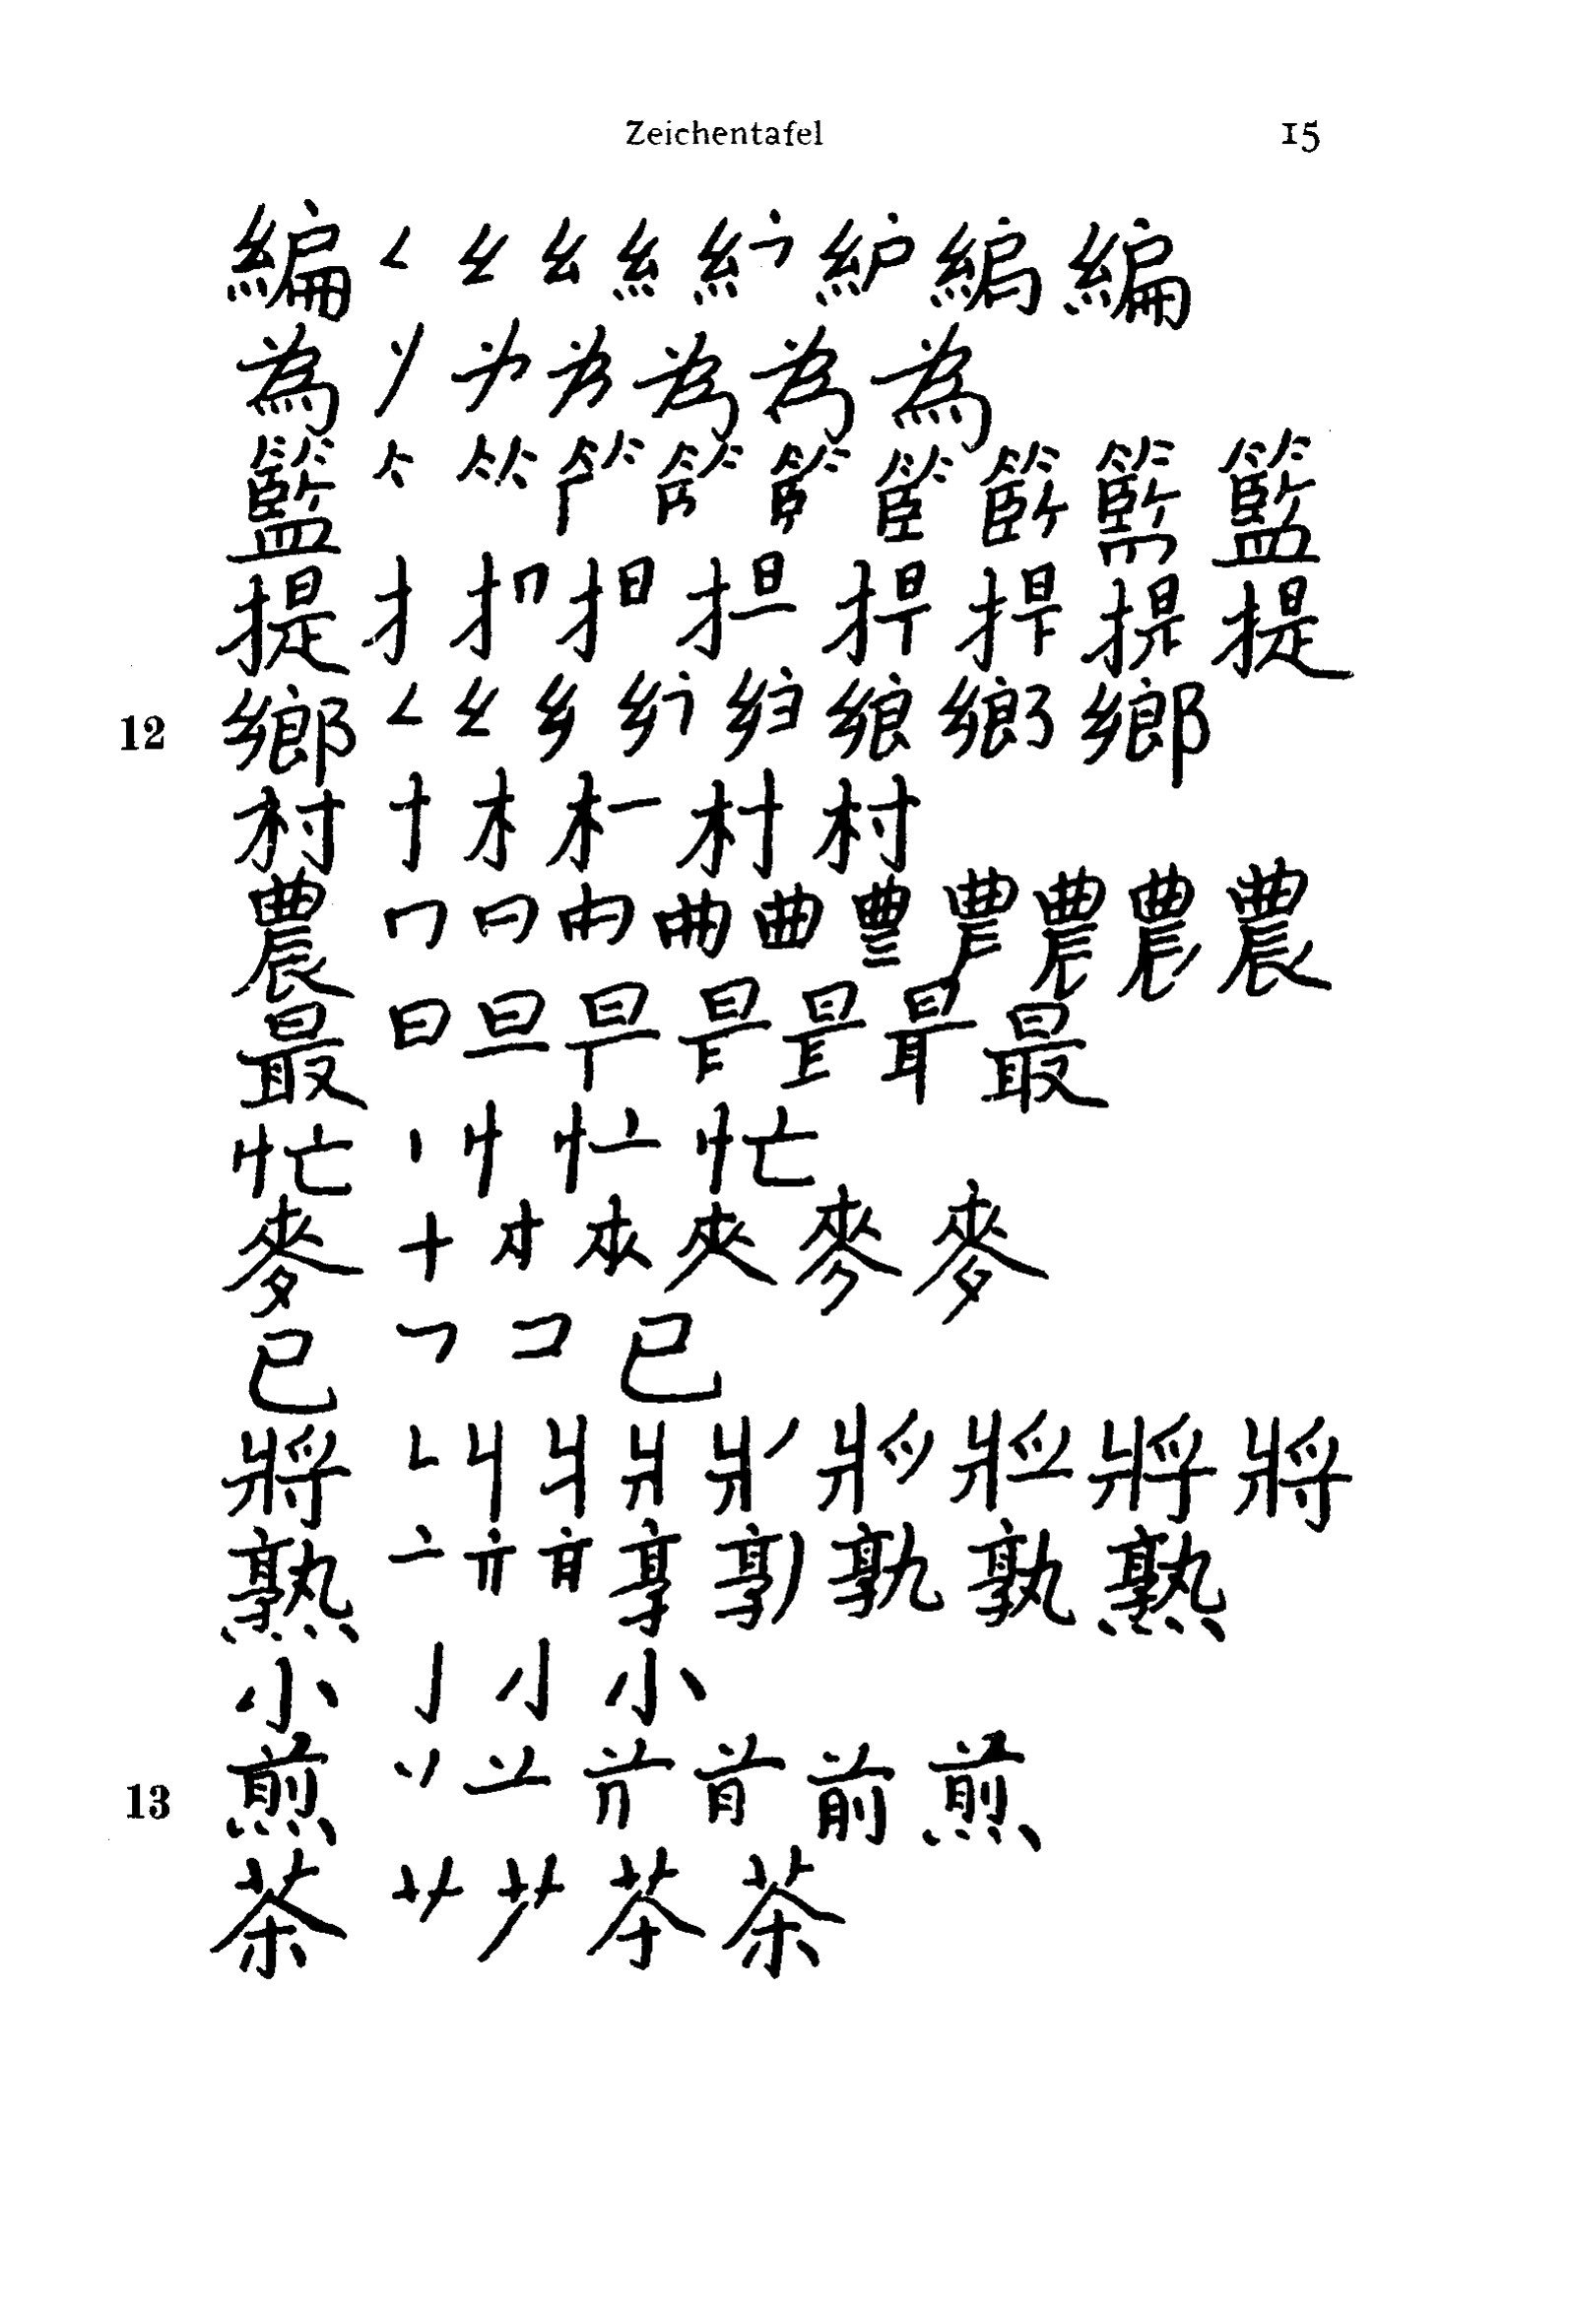 Zeichentafel 15
編
為
籃
提
12 鄉
村
農
最
忙
麥
已
將
熟
小
13 煎
茶